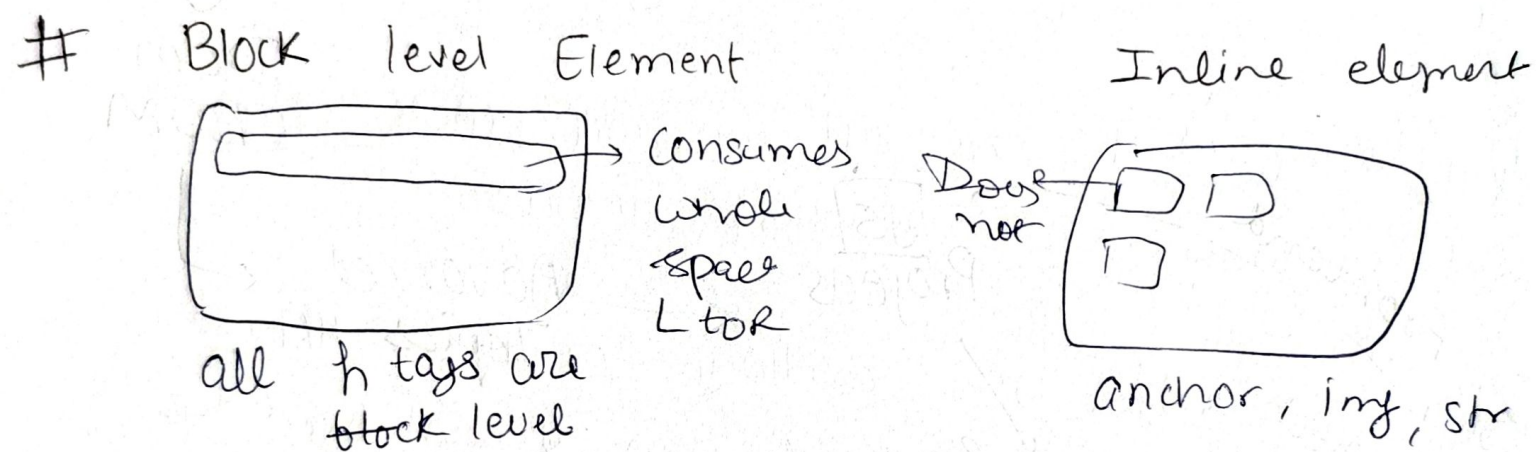 # Block level Element
Consumes
whole
space
L to R
all h tags are
block level
Inline element
Does
not
anchor, img, str